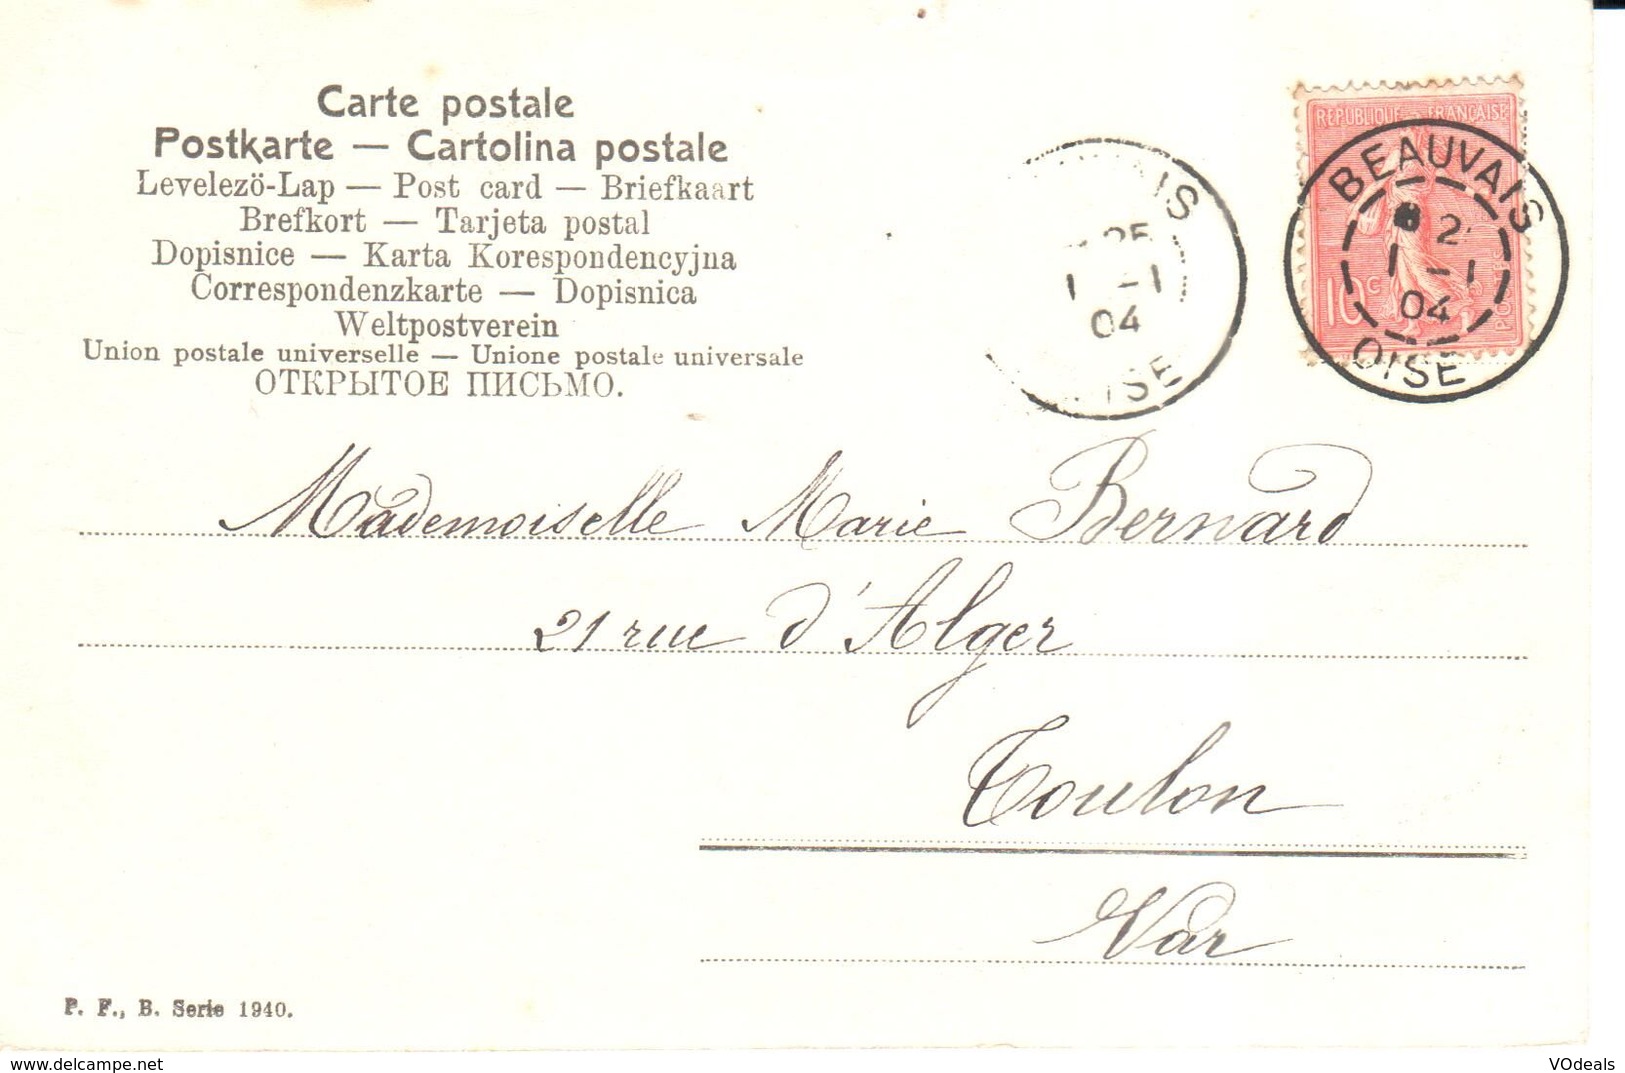 Carte postale
Postkarte — Cartolina postale
Levelezö-Lap — Post card — Briefkaart
Brefkort — Tarjeta postal
Dopisnice — Karta Korespondencyjna
Correspondenzkarte — Dopisnica
Weltpostverein
Union postale universelle — Unione postale universale
ОТКРЫТОЕ ПИСЬМО.
1 - 1
04
REPUBLIQUE FRANÇAISE
10 C
POSTES
BEAUVAIS
1 - 1
04
OISE
Mademoiselle Marie Bernard
21 rue d'Alger
Toulon
Var
P. F., B. Serie 1940.
www.delcampe.net
VOdeals